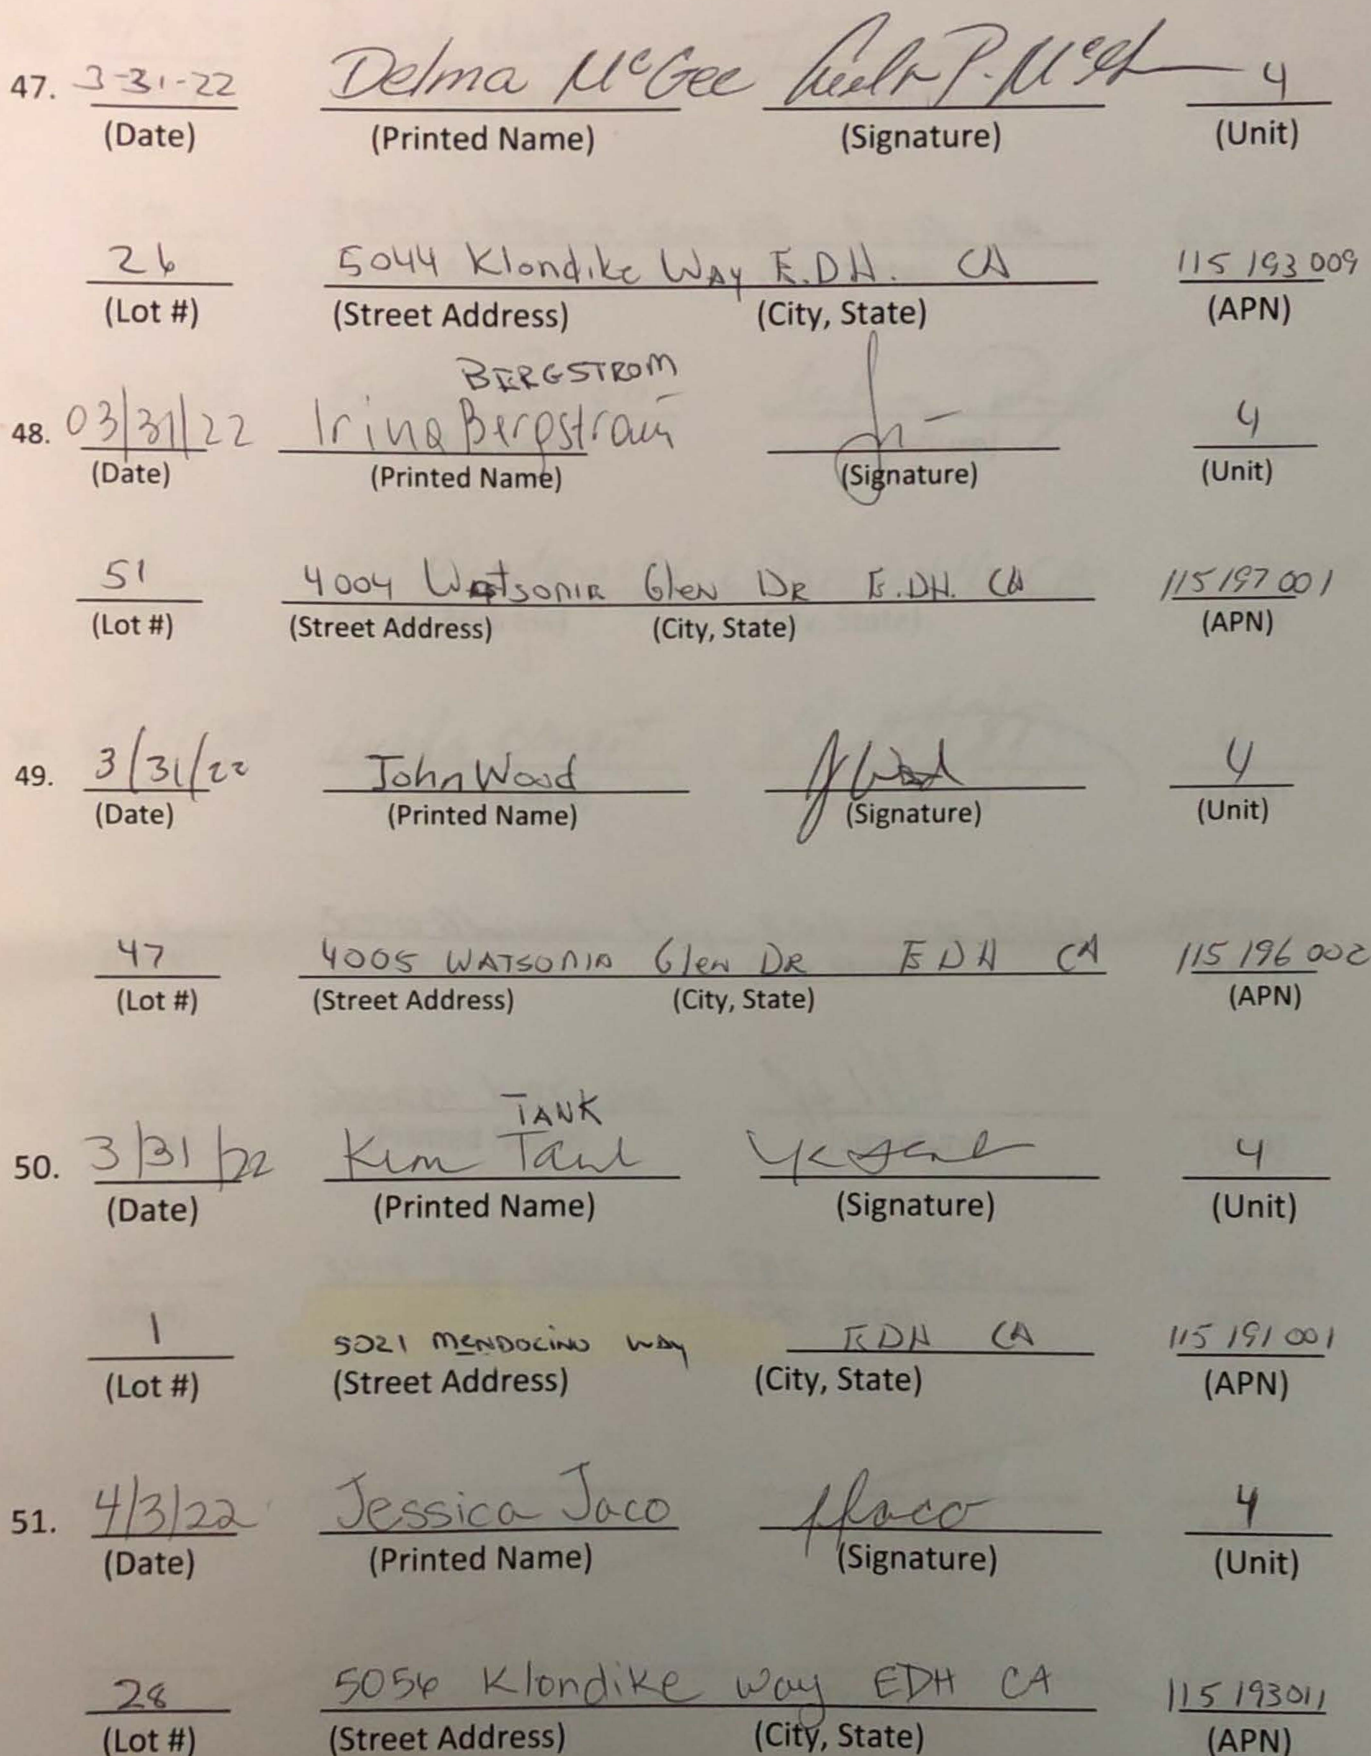 47. 3-31-22 Delma McGee 4
(Date) (Printed Name) (Signature) (Unit)
26 5044 Klondike Way E.D.H. CA 115 193 009
(Lot #) (Street Address) (City, State) (APN)
BERGSTROM
48. 03/31/22 Irina Bergstrom 4
(Date) (Printed Name) (Signature) (Unit)
51 4004 Watsonia Glen Dr E.DH. CA 115 197 001
(Lot #) (Street Address) (City, State) (APN)
49. 3/31/22 John Wood J Wood 4
(Date) (Printed Name) (Signature) (Unit)
47 4005 WATSONIA Glen DR EDH CA 115 196 002
(Lot #) (Street Address) (City, State) (APN)
TANK
50. 3/31/22 Kim Tank 4
(Date) (Printed Name) (Signature) (Unit)
1 5021 MENDOCINO WAY EDH CA 115 191 001
(Lot #) (Street Address) (City, State) (APN)
51. 4/3/22 Jessica Jaco JJaco 4
(Date) (Printed Name) (Signature) (Unit)
28 5056 Klondike Way EDH CA 115 193011
(Lot #) (Street Address) (City, State) (APN)